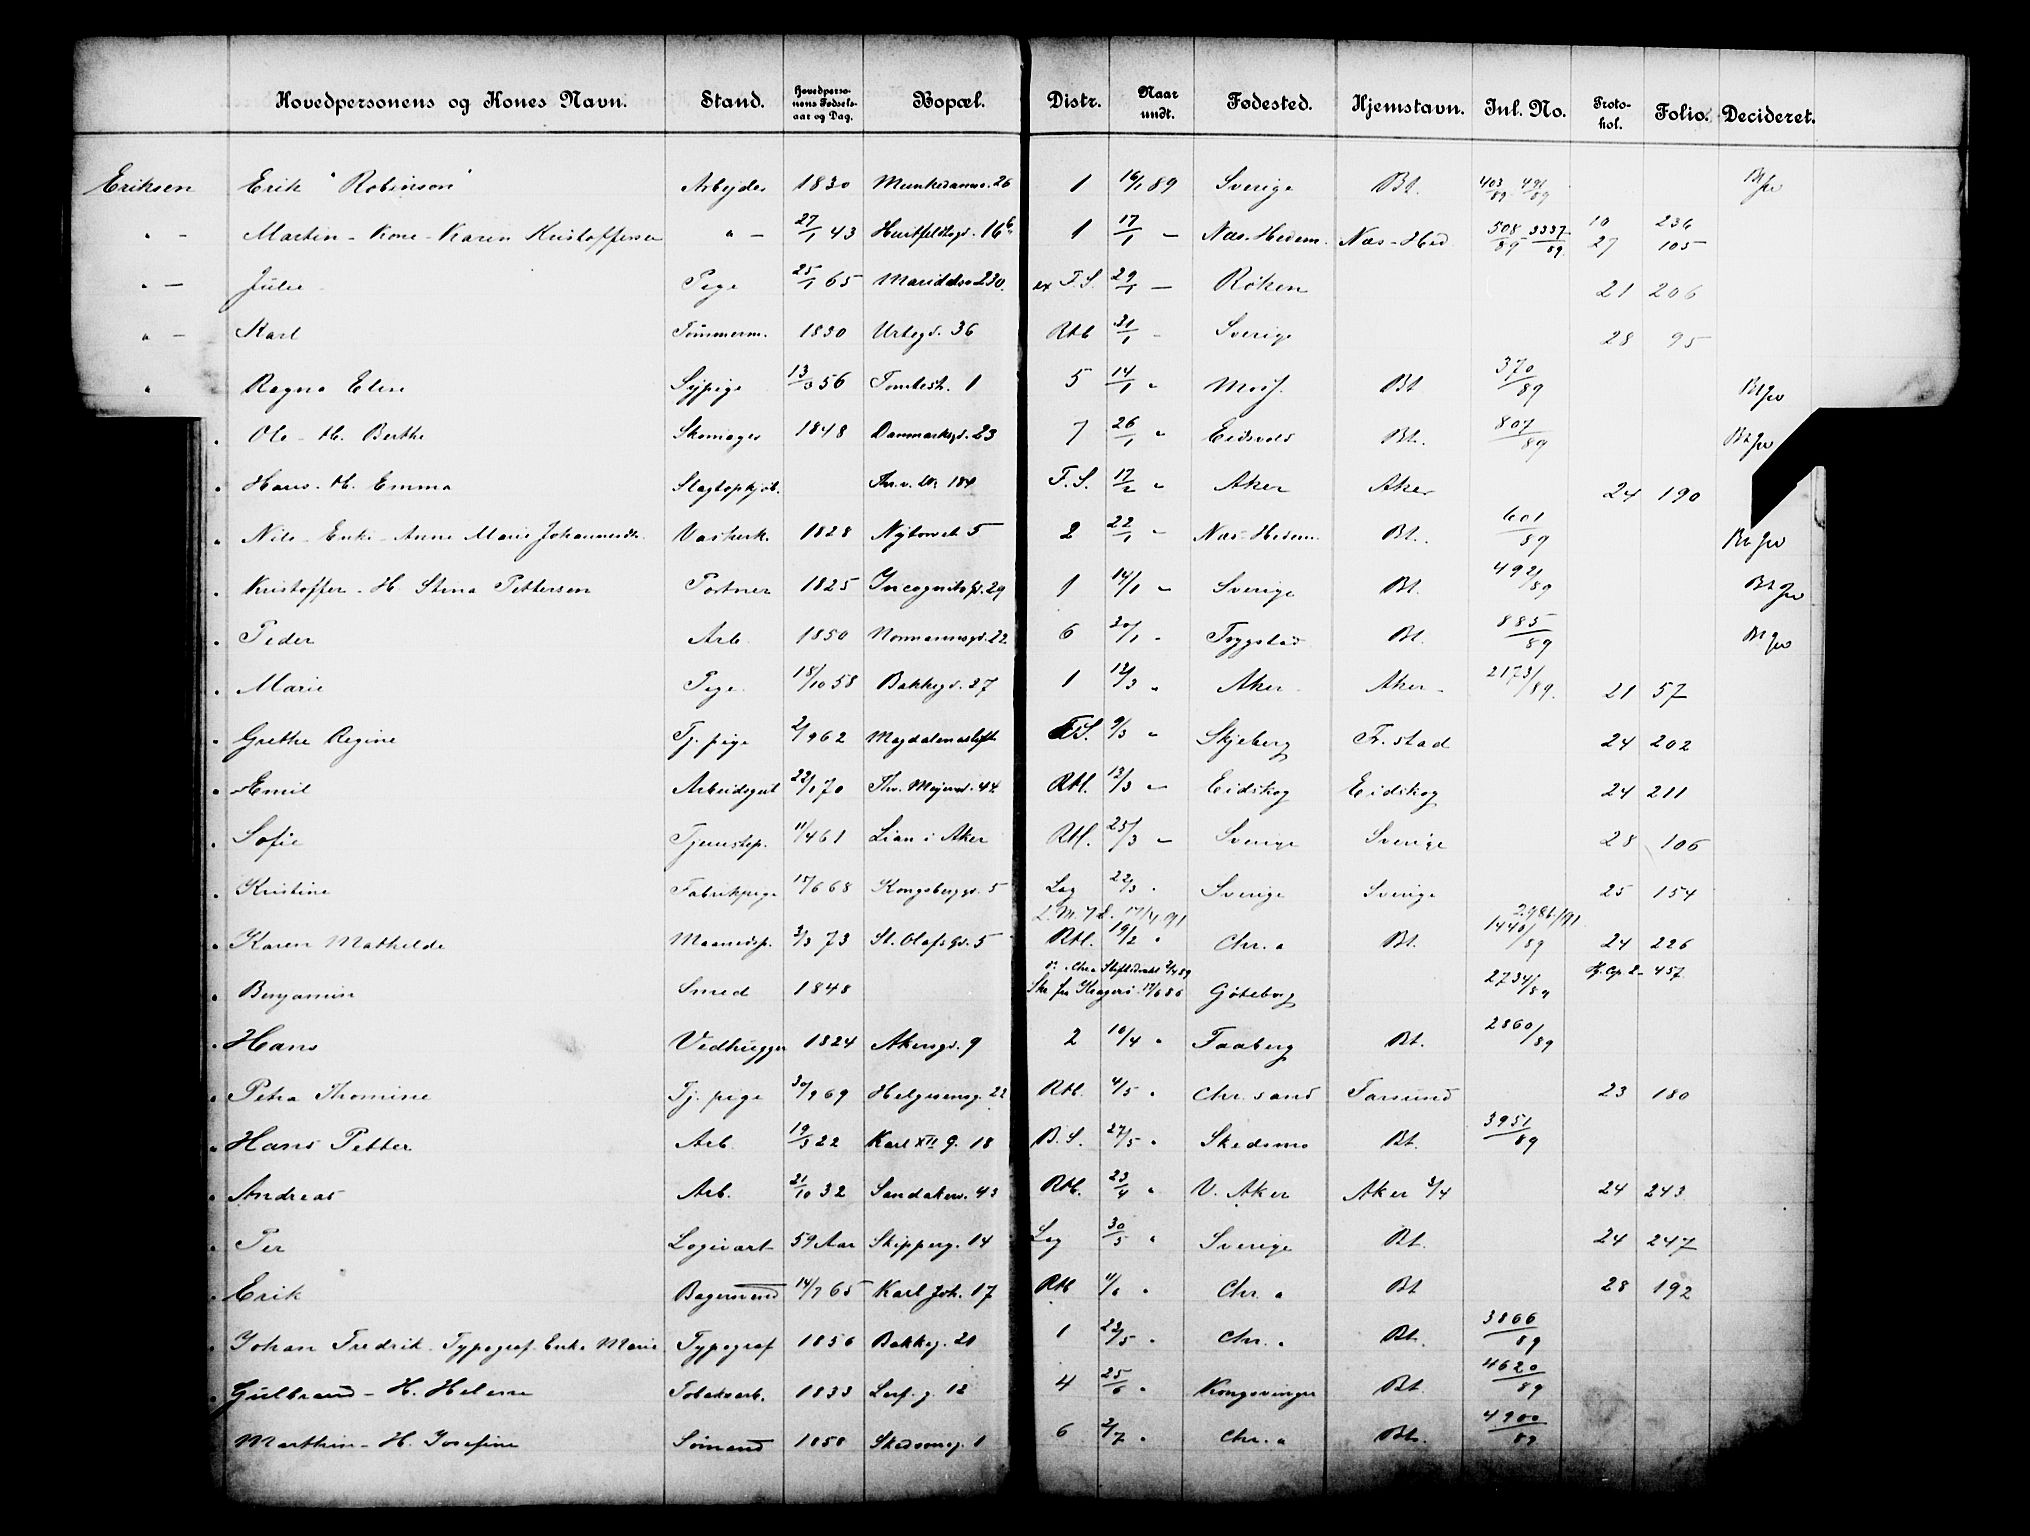 Hovedpersonens og Kones Navn. Stand. Hovedpersonens Fødselsaar og Dag. Bopæl. Distr. Naar undt. Fødested. Hjemstavn. Inl. No. Protokol. Folio. Decideret.
Eriksen Erik "Robinson" Arbejder 1830 Munkedamsv. 26 1 16/1 89 Sverige Bt. 403/89 491/89
" — Martin - Kone - Karen Kristoffersen " — 27/1 43 16b 1 17/1 — Næs-Hedem. Næs-Hed 508/89 3337/89 10 236 27 105
" — Julie Pige 25/1 65 230 ex F.S. 29/1 — Røken 21 206
" — Karl Tømmerm. 1830 Urtegd. 36 Rtl 31/1 - Sverige 28 95
" Ragna Elise Sypige 13/3 56 Tomtest. 1 5 14/1 " Moss. Bt 370/89
" Ole - H. Berthe Skomager 1848 Danmarksgd. 23 7 26/1 " Eidsvold Bt. 807/89
" Hans - H. Emma 184 F.S. 17/2 " Aker Aker 24 190
" Nils - Enke - Anne Marie Johannesdtr. Vaskerk. 1828 Nytorvet 5 2 22/1 " Næs-Hedem. Bt. 601/89
" Kristoffer - H Stina Pettersen Portner 1825 Incognitogd. 29 1 14/1 " Sverige Bt. 492/89
" Peder Arb. 1850 Normannsgd. 22 6 20/1 " Trygstad Bt. 885/89
" Marie Pige. 18/10 58 Bakkegd. 27 1 12/3 " Aker Aker 2173/89 21 57
" Grethe Regine Tj. pige 2/9 62 Magdalenastift F.S. 9/3 " Skjeberg Fr.stad 24 202
" Emil Arbeidsgut 22/1 70 Thv. Meyersgd. 44 Rtl. 13/3 " Eidskog Eidskog 24 211
" Sofie Tjenestep. 11/4 61 Lian i Aker Rtl. 25/3 " Sverige Sverige 28 106
" Kristine Fabrikpige 15/6 68 Kongsberggd. 5 Lag 22/3 " Sverige Sverige 25 154
17/4 91 2986/91
" Karen Mathilde Maanedsp. 3/3 73 St. Olafsgd. 5 Rtl. 19/2 " Chr.a Bt. 1446/89 24 226
Chr.a 457
" Benjamin Smed 1848 Göteborg 2734/89
" Hans Vedhugger 1824 Akersgd. 9 2 10/4 " Faaberg Bt. 2860/89
" Petra Thomine Tj. pige 30/9 69 Helgesensg. 22 Rtl. 4/5 " Chr.sand Farsund 23 180
" Hans Petter Arb. 19/3 22 Karl XII g. 18 B.S. 27/5 " Skedsmo Bt. 3951/89
" Andreas Arb. 21/10 32 Sandakerv. 43 Rtl. 23/4 " V. Aker Aker 3/4 24 243
" Per Logivært 59 Aar Skipperg. 14 Lag 30/5 " Sverige Bt. 24 247
" Erik Bagersvend 14/7 65 Karl Joh. 17 Rtl 11/6 " Chr.a Bt 28 192
" Johan Fredrik - Typograf - Enke Marie Typograf 1856 Bakkeg. 21 1 22/5 " Chr.a Bt. 3866/89
" Gulbrand - H. Helene Tobaksarb. 1833 12 4 25/6 " Kongsvinger Bt. 4620/89
Marthin - H. Josefine Sømand 1858 Skedsmog. 1 6 2/7 " Chr.a Bt. 4900/89